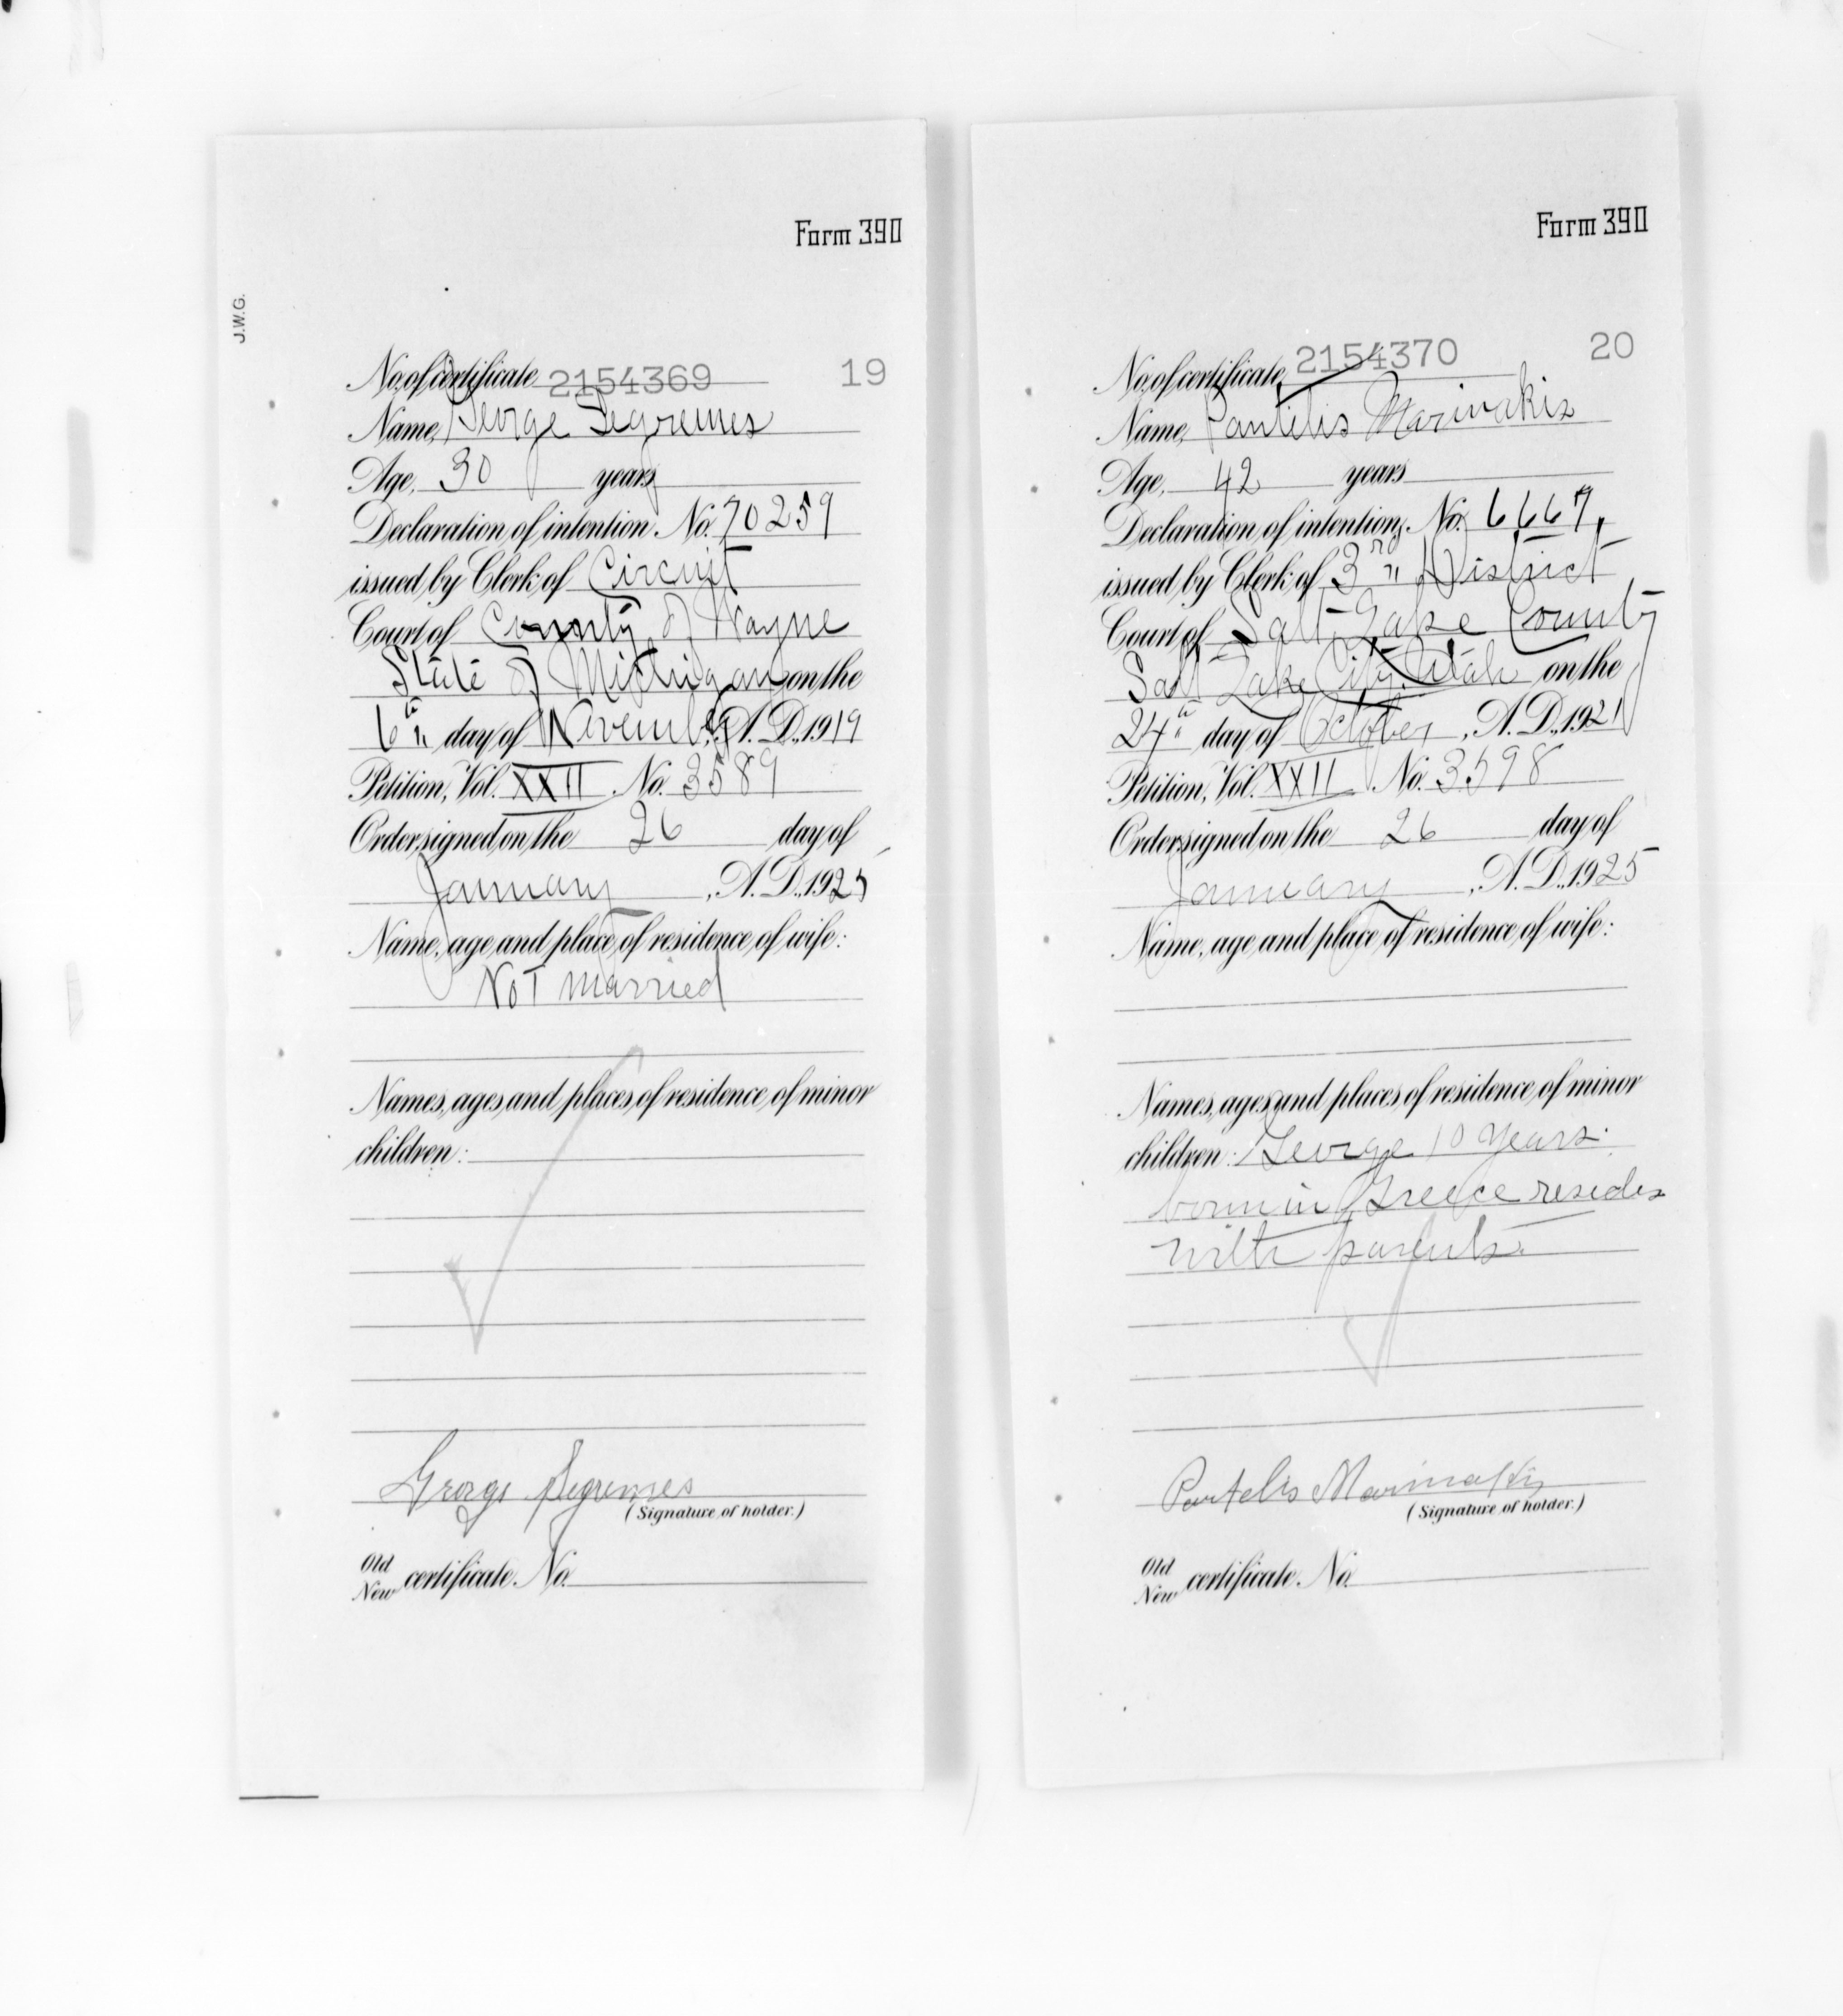 J.W.G.
Form 390
19
No. of certificate, 2154369
Name, George Segremes
Age, 30 years
Declaration of intention, No. 70259
issued by Clerk of Circuit
Court of County of Wayne
State of Michigan on the
6th day of November, A.D., 1919
Petition, Vol. XXII, No. 3589
Order signed on the 26 day of
January, A.D., 1925
Name, age and place of residence of wife:
Not Married
Names, ages, and places of residence of minor
children:
George Segremes
(Signature of holder.)
Old
New certificate, No.
Form 390
20
No. of certificate, 2154370
Name, Pantelis Marinakis
Age, 42 years
Declaration of intention, No. 6667,
issued by Clerk of 3rd District
Court of Salt Lake County
Salt Lake City, Utah on the
24th day of October, A.D., 1921
Petition, Vol. XXII, No. 3598
Order signed on the 26 day of
January, A.D., 1925
Name, age and place of residence of wife:
Names, ages, and places of residence of minor
children: George 10 years.
born in Greece resides
with parents.
Pantelis Marinakis
(Signature of holder.)
Old
New certificate, No.